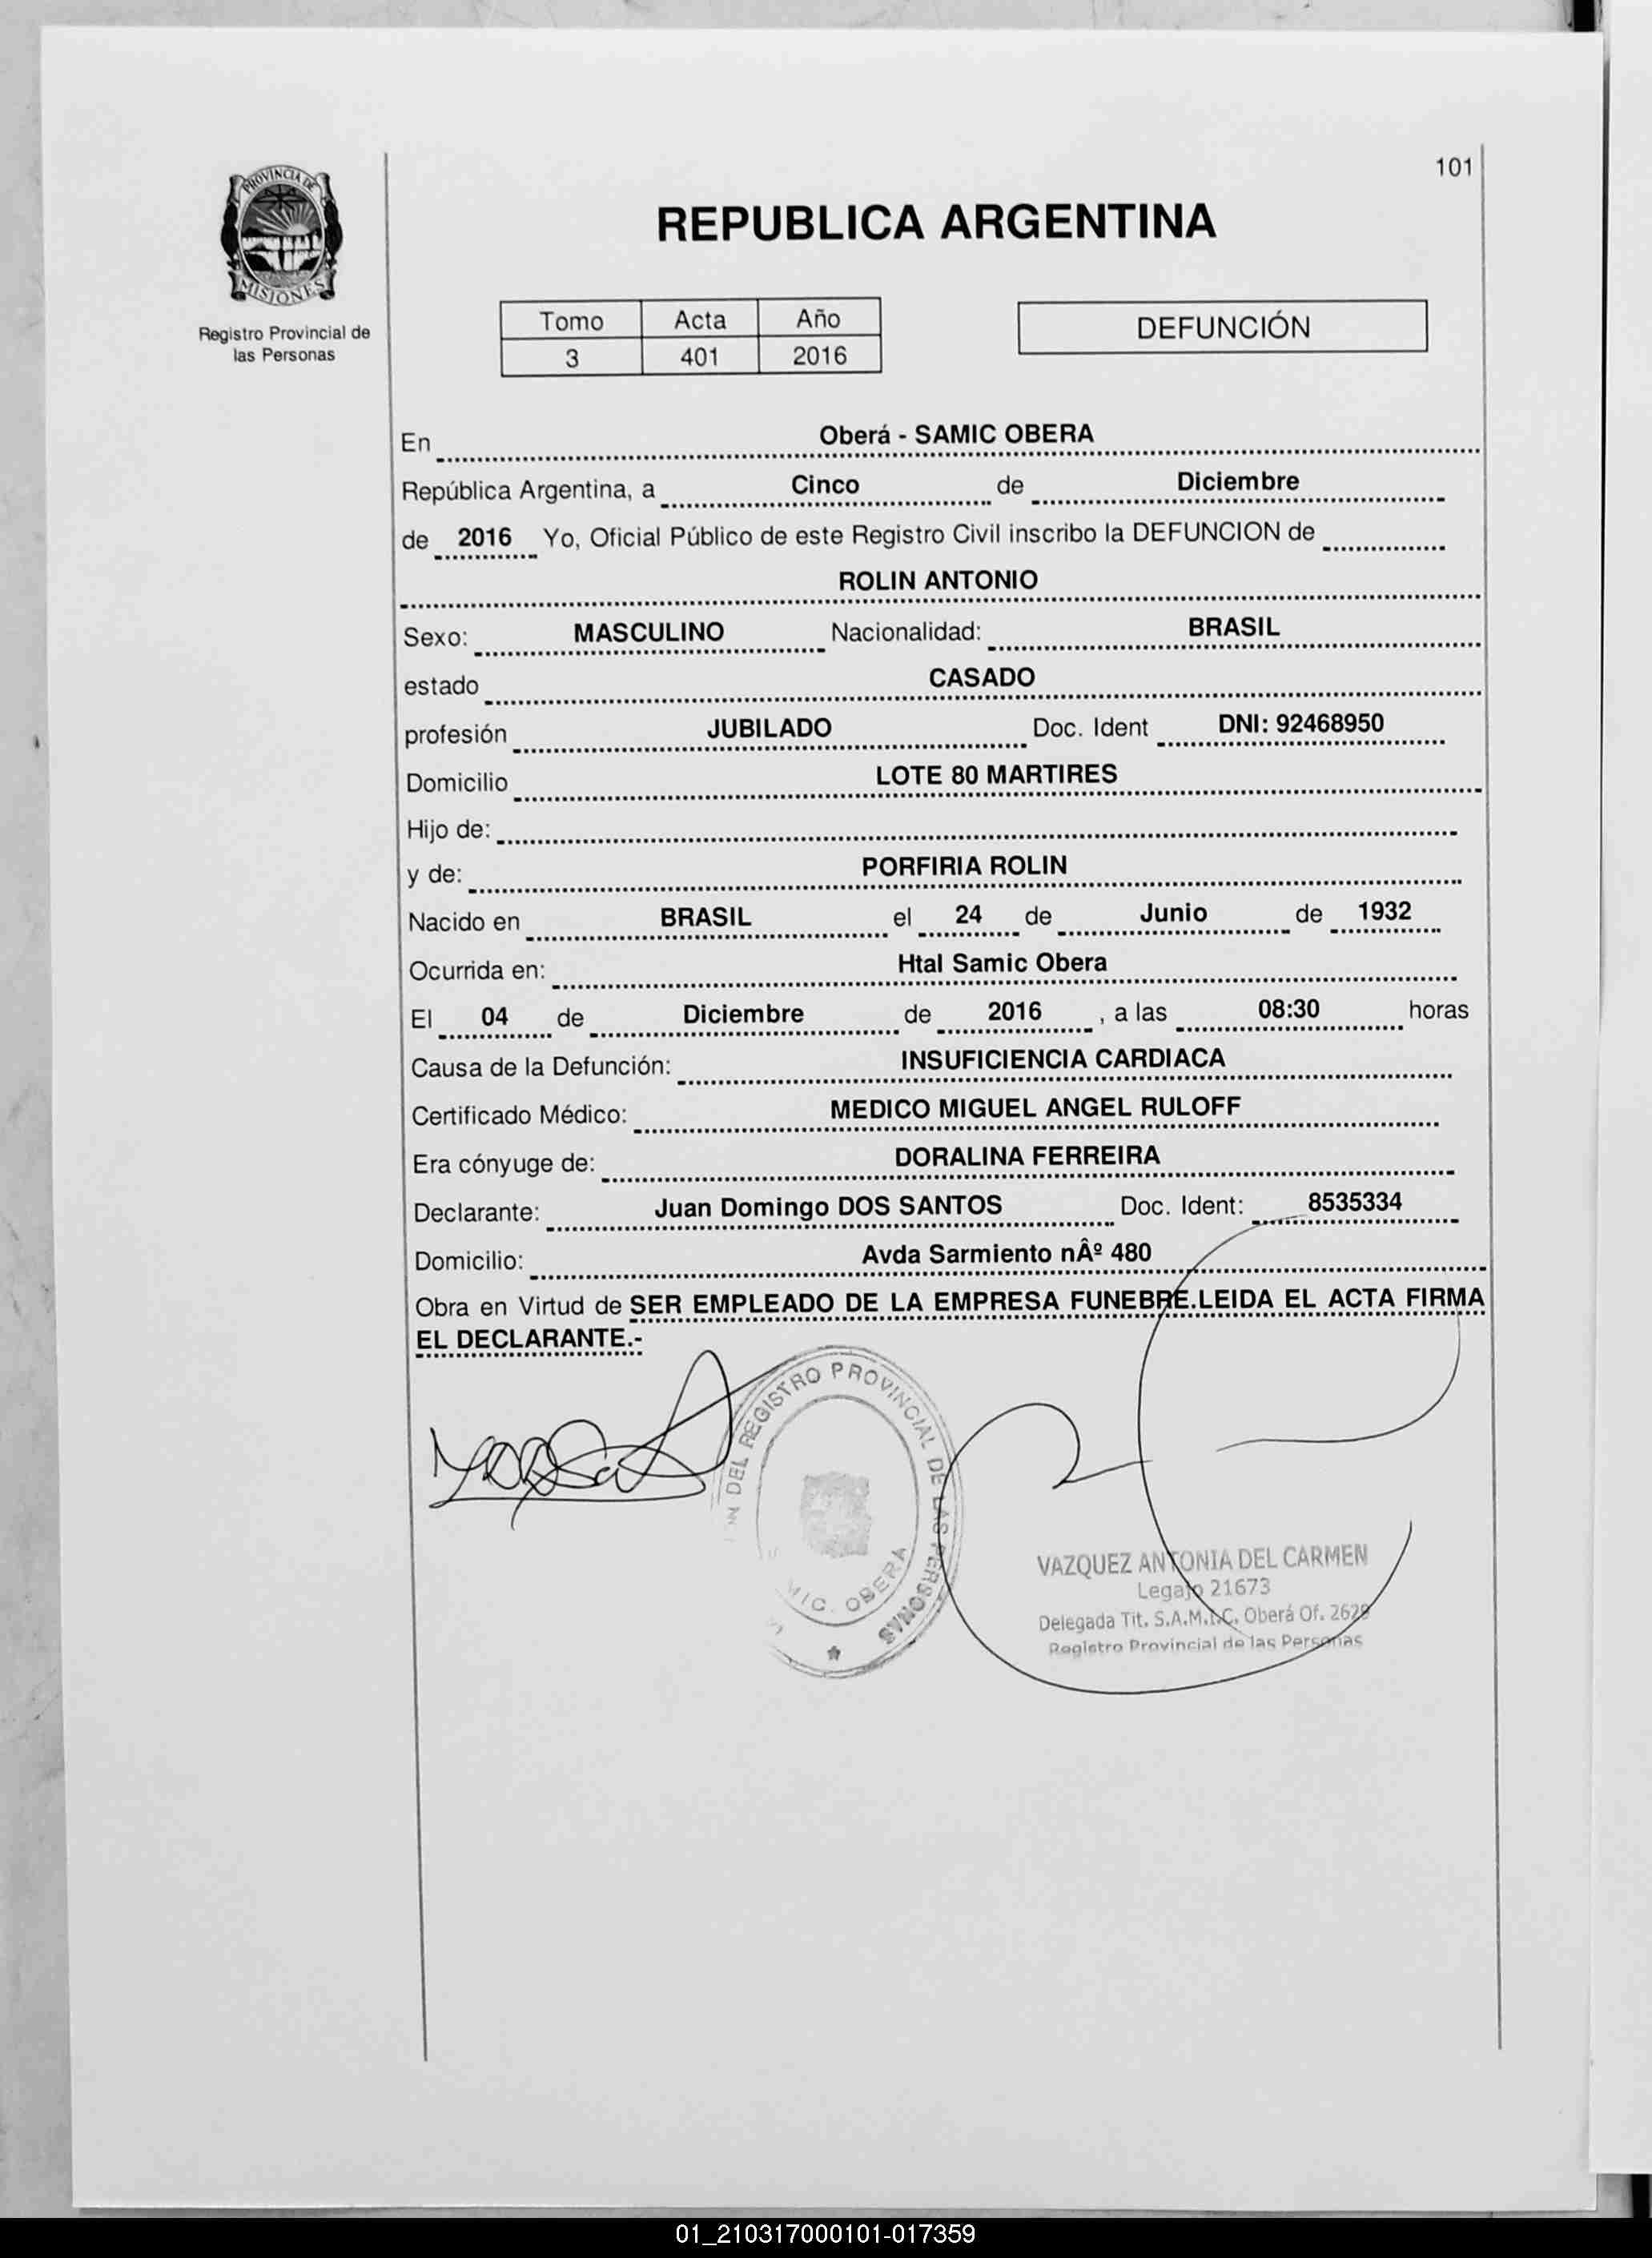 101
PROVINCIA DE
MISIONES
Registro Provincial de
las Personas
REPUBLICA ARGENTINA
Tomo Acta Año
3 401 2016
DEFUNCIÓN
En Oberá - SAMIC OBERA
República Argentina, a Cinco de Diciembre
de 2016 Yo, Oficial Público de este Registro Civil inscribo la DEFUNCION de
ROLIN ANTONIO
Sexo: MASCULINO Nacionalidad: BRASIL
estado CASADO
profesión JUBILADO Doc. Ident DNI: 92468950
Domicilio LOTE 80 MARTIRES
Hijo de:
y de: PORFIRIA ROLIN
Nacido en BRASIL el 24 de Junio de 1932
Ocurrida en: Htal Samic Obera
El 04 de Diciembre de 2016 , a las 08:30 horas
Causa de la Defunción: INSUFICIENCIA CARDIACA
Certificado Médico: MEDICO MIGUEL ANGEL RULOFF
Era cónyuge de: DORALINA FERREIRA
Declarante: Juan Domingo DOS SANTOS Doc. Ident: 8535334
Domicilio: Avda Sarmiento nÂº 480
Obra en Virtud de SER EMPLEADO DE LA EMPRESA FUNEBRE.LEIDA EL ACTA FIRMA
EL DECLARANTE.-
DEL REGISTRO PROVINCIAL DE LAS PERSONAS
OBERA
VAZQUEZ ANTONIA DEL CARMEN
Legajo 21673
Delegada Tit. S.A.M.I.C. Oberá Of. 2629
Registro Provincial de las Personas
01_210317000101-017359